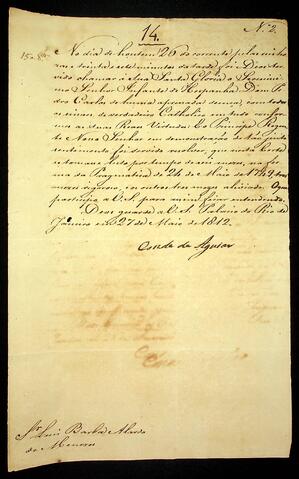 14.
N.º 2.
No dia de hontem 26 do corrente, pela minha
ma e trinta e sete minutos da tarde foi Deos ser
vido chamar á Sua Santa Gloria o Serenissimo
Senhor Infante de Hespanha Dom Pe
dro Carlos de huma aguda doença, com todos
os sinaes de verdadeiro Catholico em tudo confor
me as suas Reaes Virtudes: E o Principe Regen
te Nosso Senhor em demonstração de tão justo
sentimento foi servido resolver, que nesta Corte
se tomasse luto por tempo de seis mezes, na for
ma da Pragmatica de 24 de Maio de 1749, tres
mezes rigoroso, e os outros tres mezes aliviado. O que
participo a V. S. para assim ficar entendendo.
Deos guarde a V. S. Palacio do Rio de
Janeiro em 27 de Maio de 1812.
Conde de Aguiar
Sr. Luis Barba Alardo
de Menezes